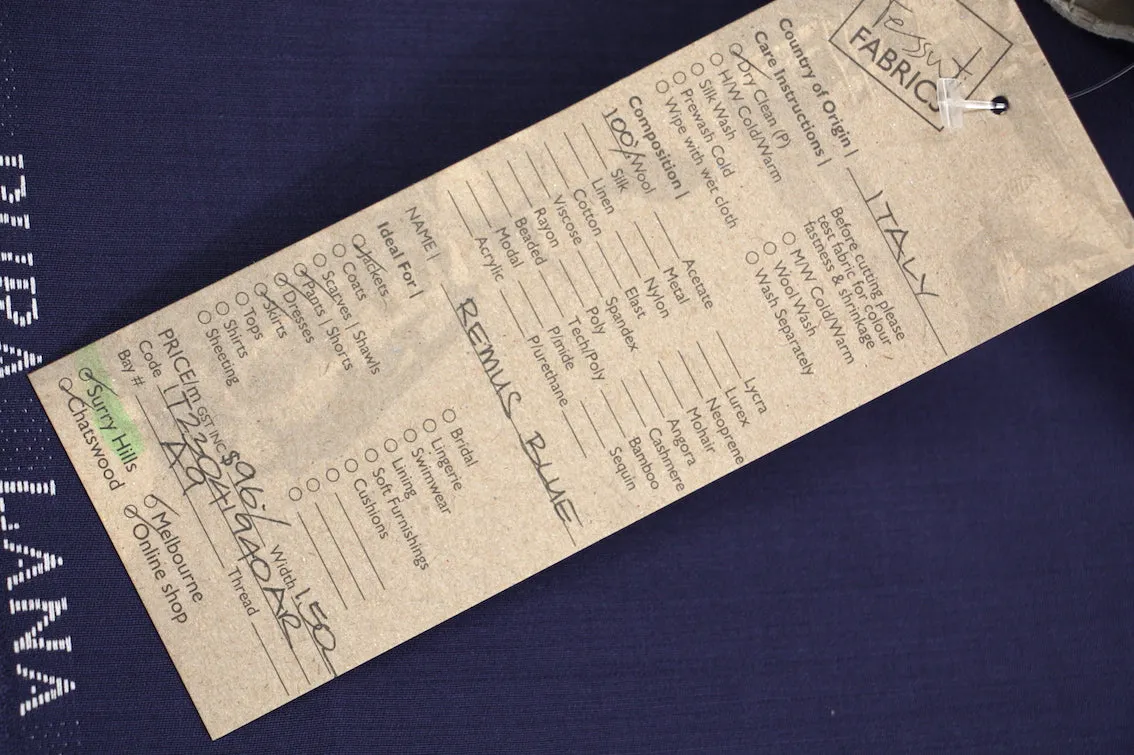 Tessuti
FABRICS
Country of Origin | ITALY
Care Instructions |
Dry Clean (P)
H/W Cold/Warm
Silk Wash
Prewash Cold
Wipe with wet cloth
Before cutting please
test fabric for colour
fastness & shrinkage
M/W Cold/Warm
Wool Wash
Wash Separately
Composition |
100% Wool
Silk
Linen
Cotton
Viscose
Rayon
Beaded
Modal
Acrylic
Acetate
Metal
Nylon
Elast
Spandex
Poly
Tech/Poly
P/mide
P/urethane
Lycra
Lurex
Neoprene
Mohair
Angora
Cashmere
Bamboo
Sequin
NAME | REMUS BLUE
Ideal For |
Jackets
Coats
Scarves | Shawls
Pants | Shorts
Dresses
Skirts
Tops
Shirts
Sheeting
Bridal
Lingerie
Swimwear
Lining
Soft Furnishings
Cushions
PRICE/m GST INC $96./ Width 150
Code
Bay # A9 Thread
Surry Hills
Chatswood
Melbourne
Online shop
LANA